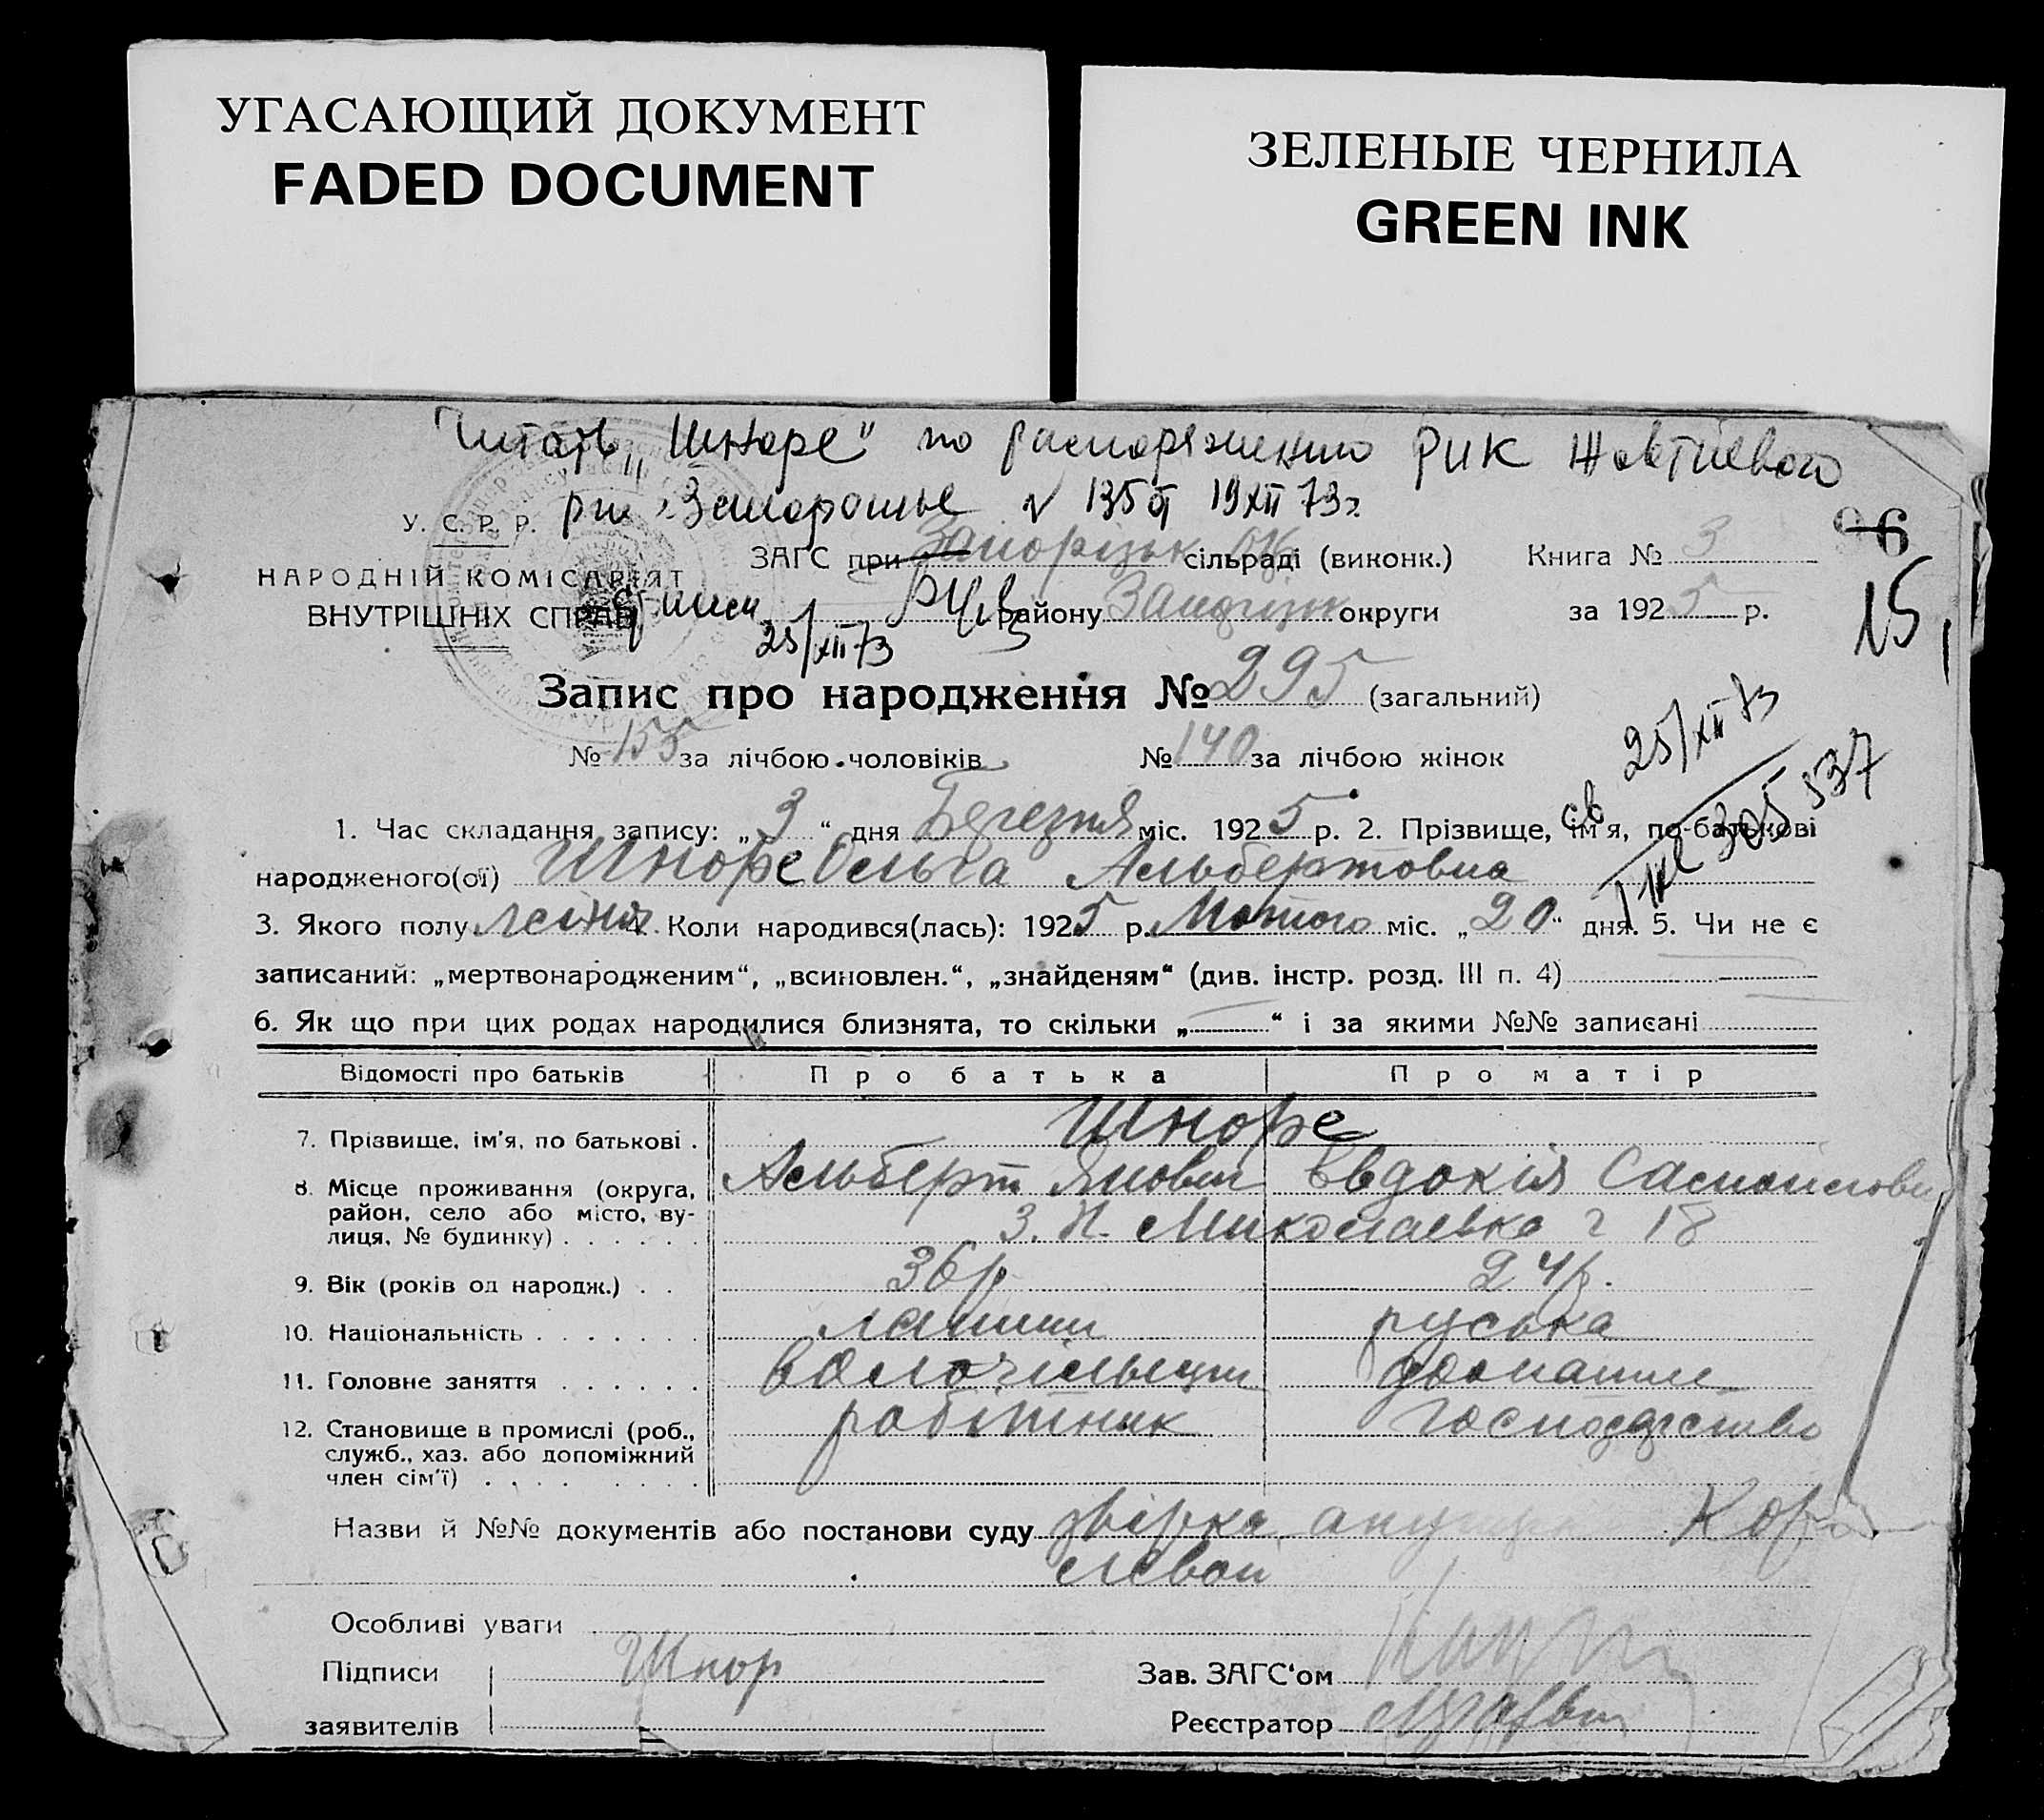 УГАСАЮЩИЙ ДОКУМЕНТ
FADED DOCUMENT
ЗЕЛЕНЫЕ ЧЕРНИЛА
GREEN INK
Читать „Шноре" по распоряжению РИК Жовтневого
г. Запорожье № 135 от 19 XII 73г.
96
15
У. С. Р. Р.
НАРОДНІЙ КОМІСАРІЯТ
ВНУТРІШНІХ СПРАВ
25/XII 73
ЗАГС при Запорізьк сільраді (виконк.) Книга № 3
району Запорізьк округи за 1925 р.
Запис про народження № 295 (загальний)
№ 155 за лічбою чоловіків № 140 за лічбою жінок
св 25/XII 73
305537
1. Час складання запису: „3" дня Березня міс. 1925 р. 2. Прізвище, ім'я, по-батькові
народженого(ої) Шноре Ольга Альбертовна
3. Якого полу жіноч. 4. Коли народився(лась): 1925 р. Лютого міс. „20" дня. 5. Чи не є
записаний: „мертвонародженим", „всиновлен.", „знайденям" (див. інстр. розд. III п. 4)
6. Як що при цих родах народилися близнята, то скільки „ " і за якими №№ записані
Відомості про батьків Про батька Про матір
7. Прізвище, ім'я, по батькові . Шноре
Альберт Янович Евдокія
8. Місце проживання (округа,
район, село або місто, ву-
лиця, № будинку) . . . . . . Миколаевка 18
9. Вік (років од народж.) . . 36 р. 24 р.
10. Національність . . . . . . . латиш руська
11. Головне заняття . . . . . . домашнє
12. Становище в промислі (роб.,
служб., хаз. або допоміжний
член сім'ї) . . . . . . . . робітник господарство
Назви й №№ документів або постанови суду
Особливі уваги
Підписи Шнор Зав. ЗАГС'ом
заявителів Реєстратор